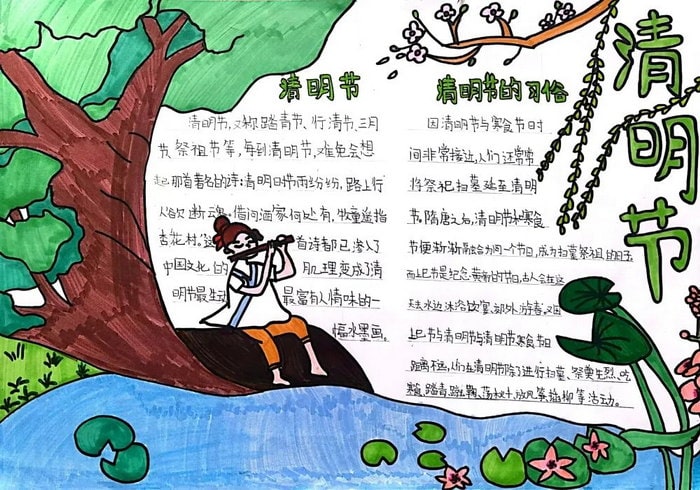 清明节
清明节
清明节,又称踏青节、行清节、三月
节、祭祖节等,每到清明节,难免会想
起那首著名的诗:清明日节雨纷纷,路上行
人欲断魂。借问酒家何处有,牧童遥指
杏花村。这首诗都已渗入了
中国文化的肌理变成了清
明节最生最富有人情味的一
幅水墨画。
清明节的习俗
因清明节与寒食节日时
间非常接近,人们还常常
将祭祀扫墓延至清明
节。隋唐之右,清明节和寒食
节便渐渐融合为同一个节日,成为扫墓祭祖的日子
而上巳节是纪念黄帝的节日,古人会在这
天去水边沐浴饮宴、郊外游春。又因
上巳节与清明节与清明节寒食节日
距离不远,人们在清明节除了进行扫墓、祭奠先烈、吃
粿、踏青、蹴鞠、荡秋千、放风筝、插柳等活动。